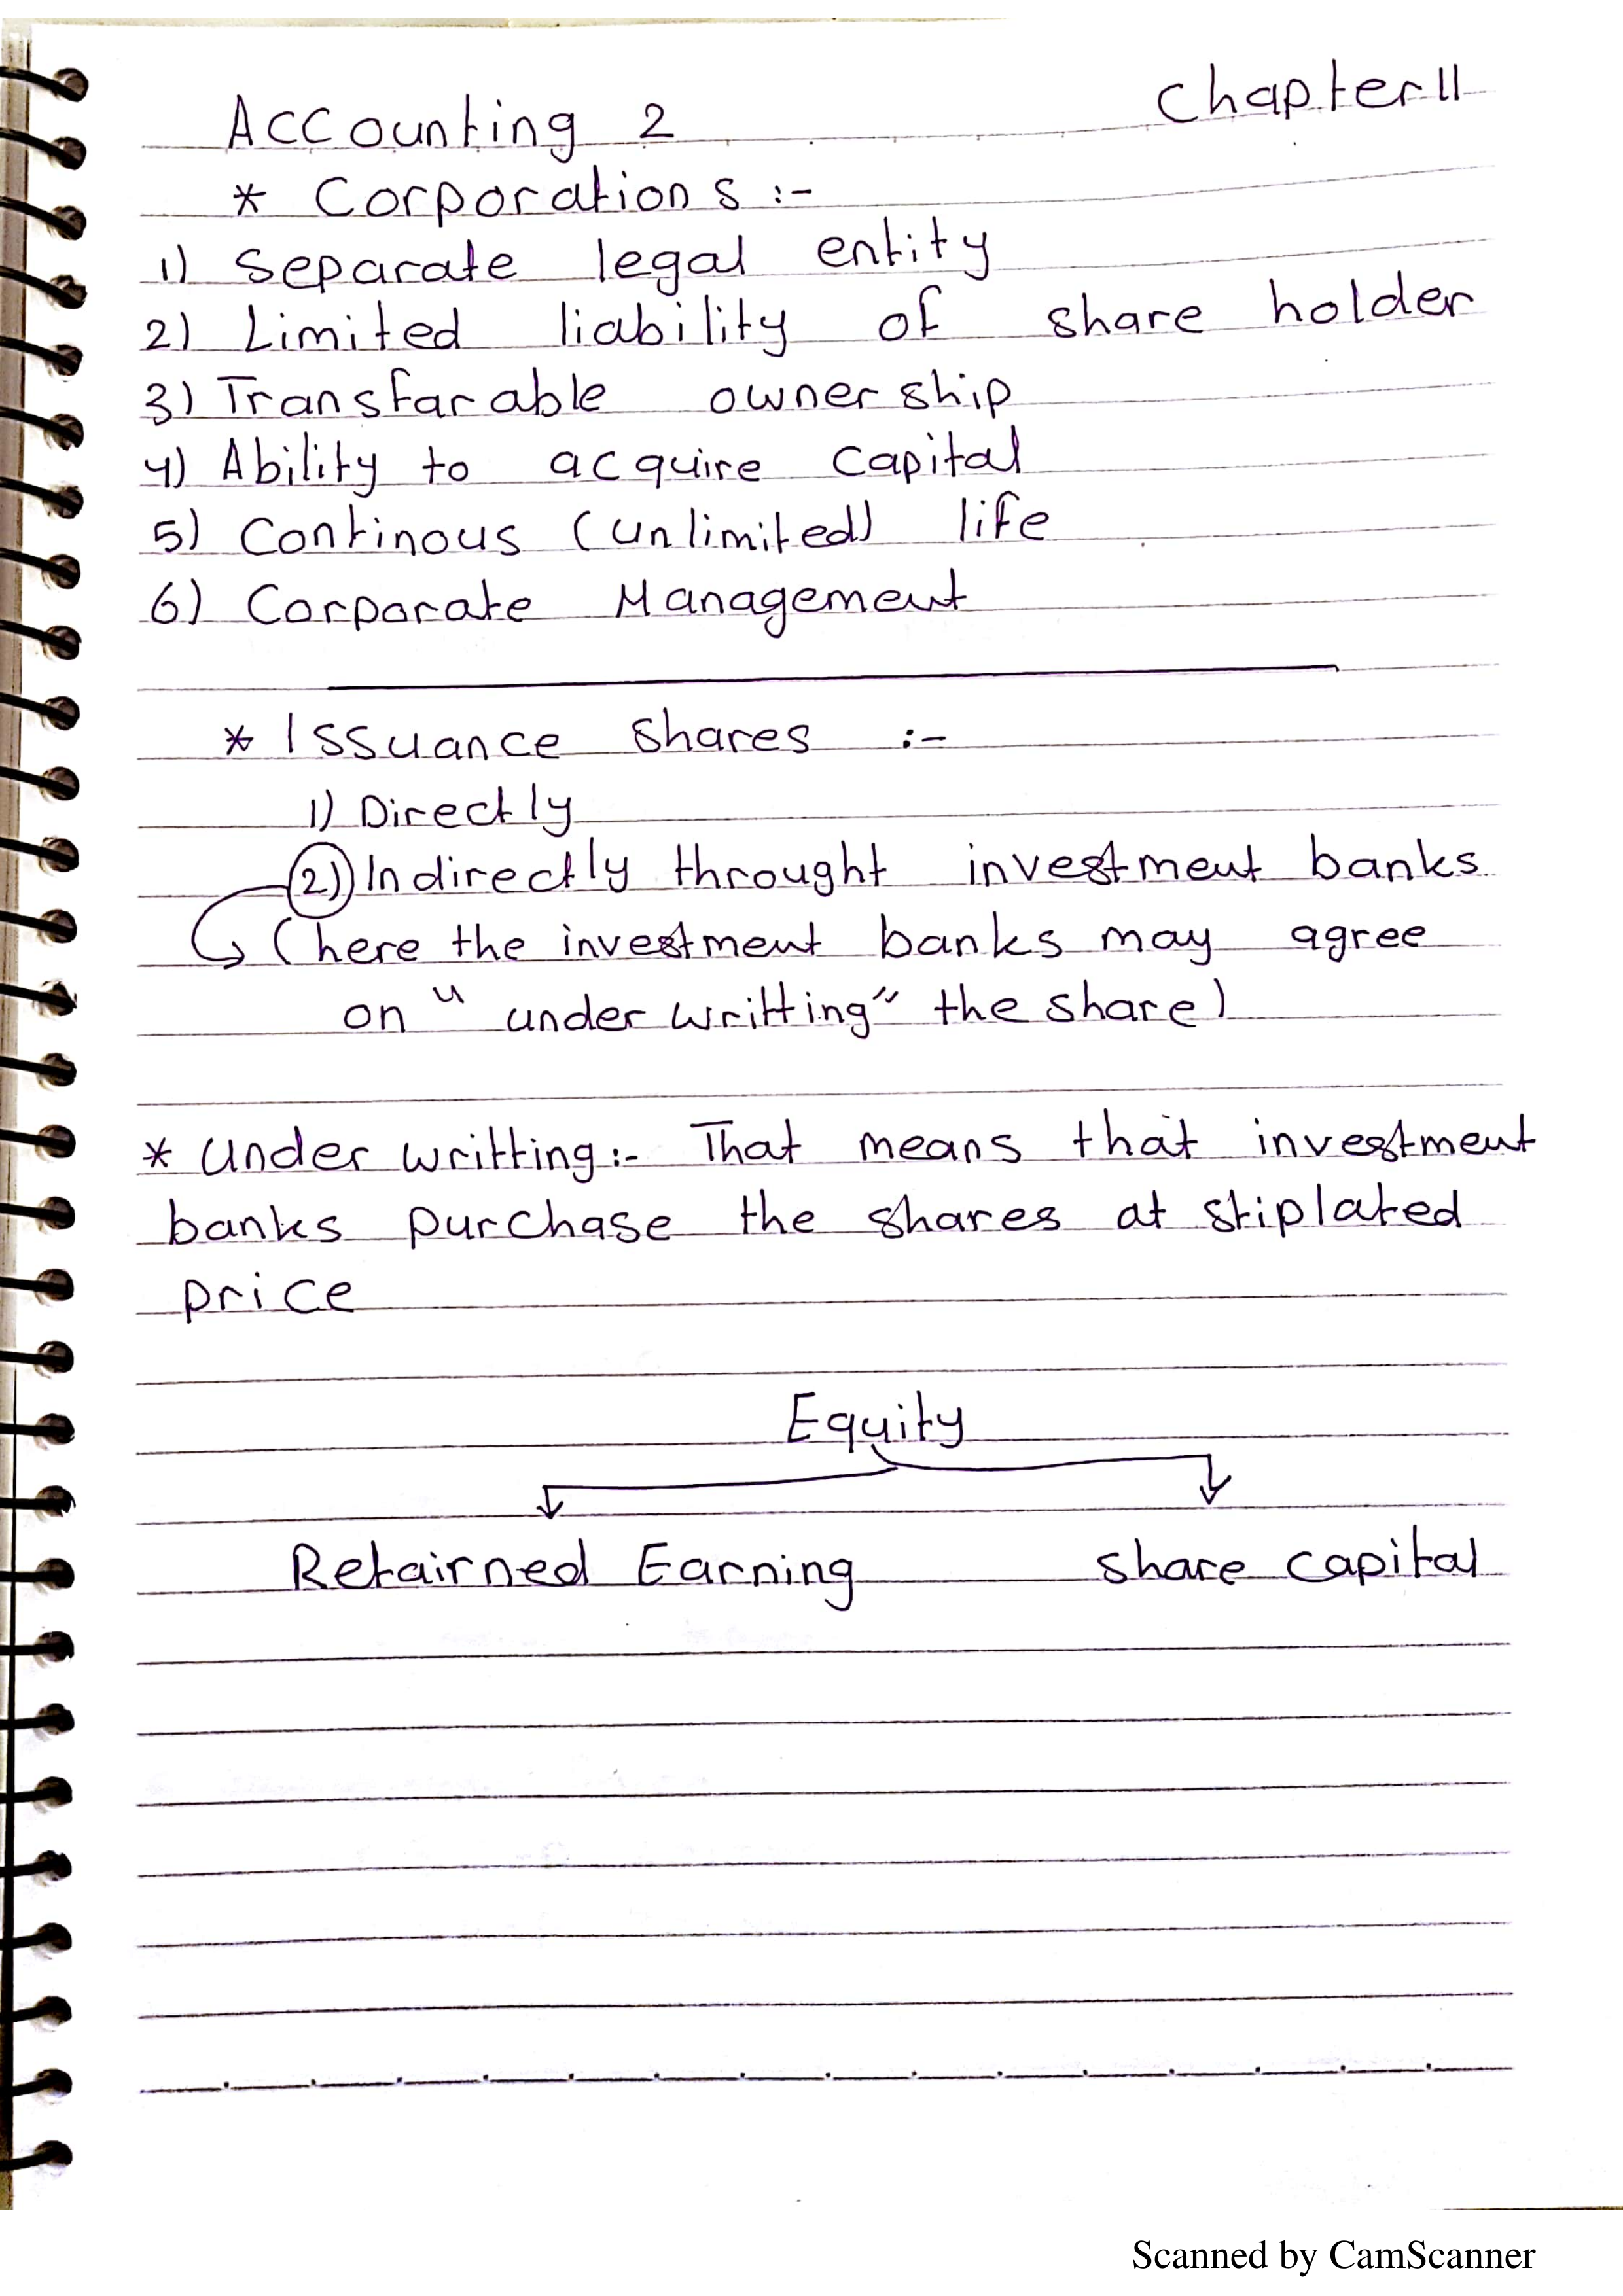 Accounting 2 Chapter 11
* Corporations :-
1) Separate legal entity
2) Limited liability of share holder
3) Transfarable ownership
4) Ability to acquire capital
5) Continous (unlimited) life
6) Corporate Management
* Issuance shares :-
1) Directly
2) Indirectly throught investment banks
(here the investment banks may agree
on "under writting" the share)
* Under writting :- That means that investment
banks purchase the shares at stiplated
price
Equity
Retairned Earning share capital
Scanned by CamScanner